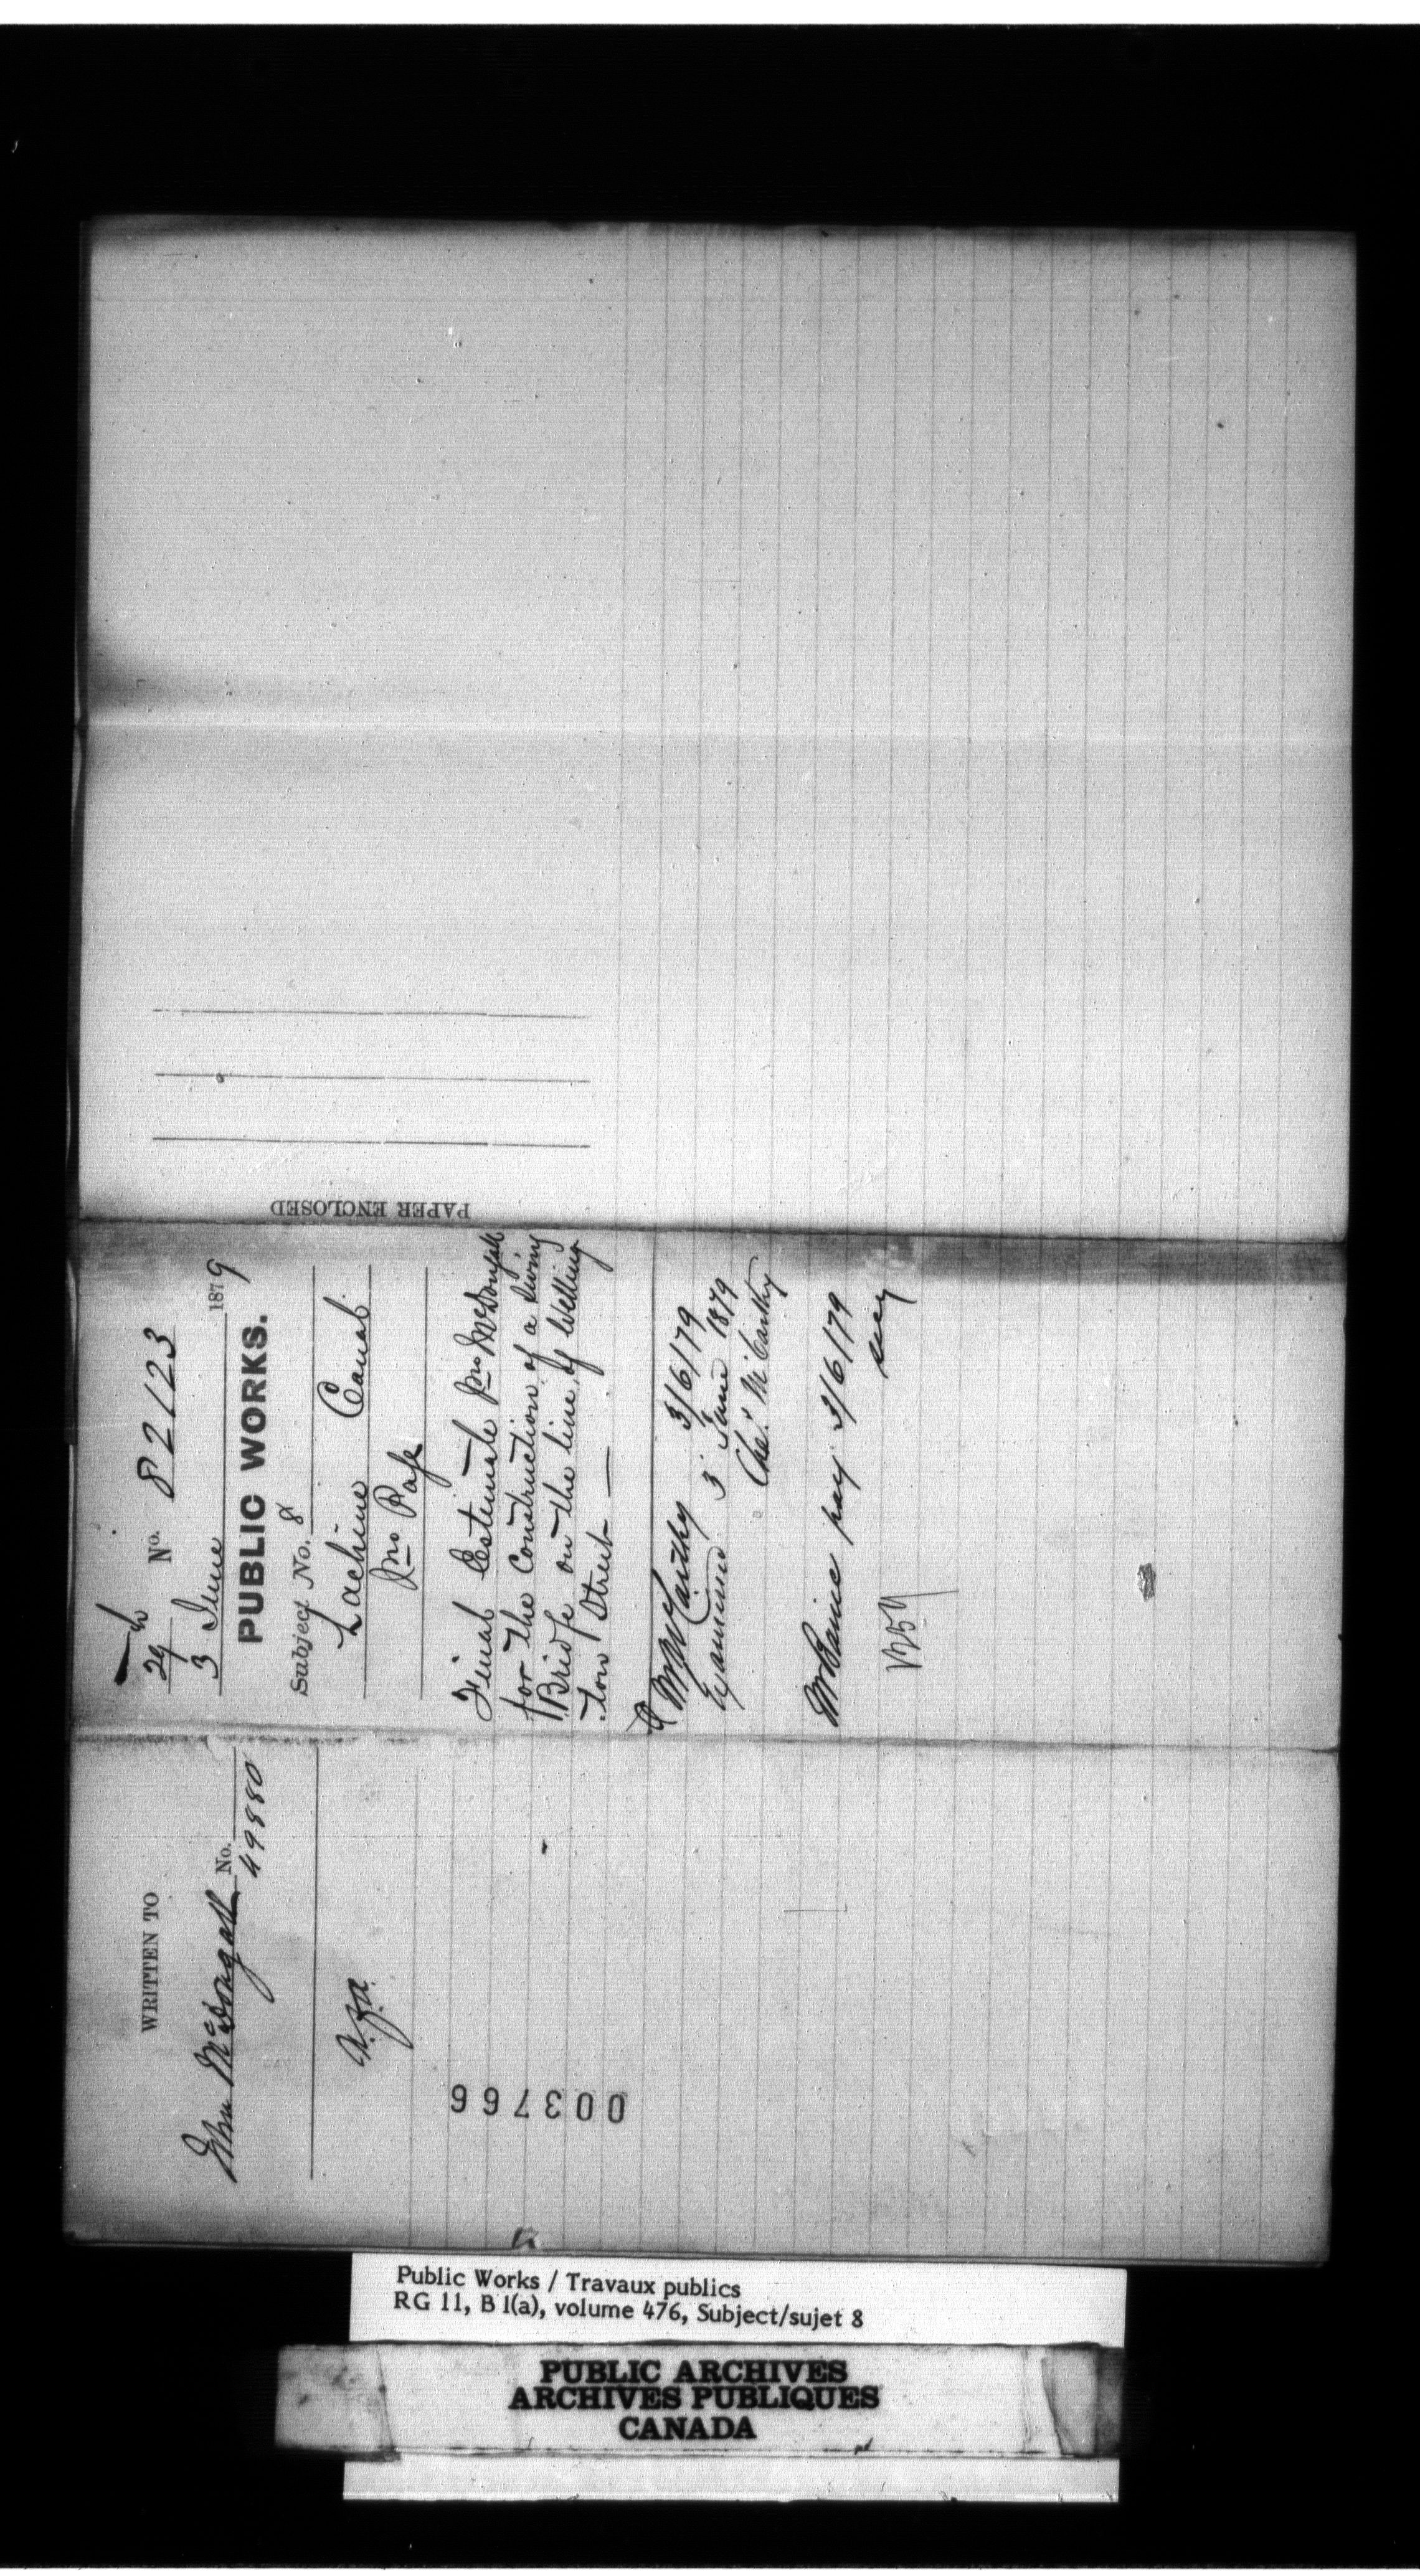 WRITTEN TO
John McDougall No.
49880
003766
29 No. 82123
3 June 1879
PUBLIC WORKS.
Subject No. 8
Lachine Canal
Jno Page
Final Estimate Jno McDougall
for the Construction of a Swing
Bridge on the line of Welling
-ton Street —
Mr McCarthy 3/6/79
Examined 3 June 1879
Chas. McCarthy
Mr Baine pay 3/6/79
PAPER ENCLOSED
Public Works / Travaux publics
RG 11, B 1(a), volume 476, Subject/sujet 8
PUBLIC ARCHIVES
ARCHIVES PUBLIQUES
CANADA